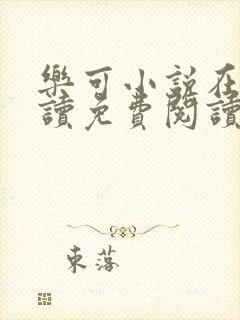 樂可小說在
讀免費閱讀
東落